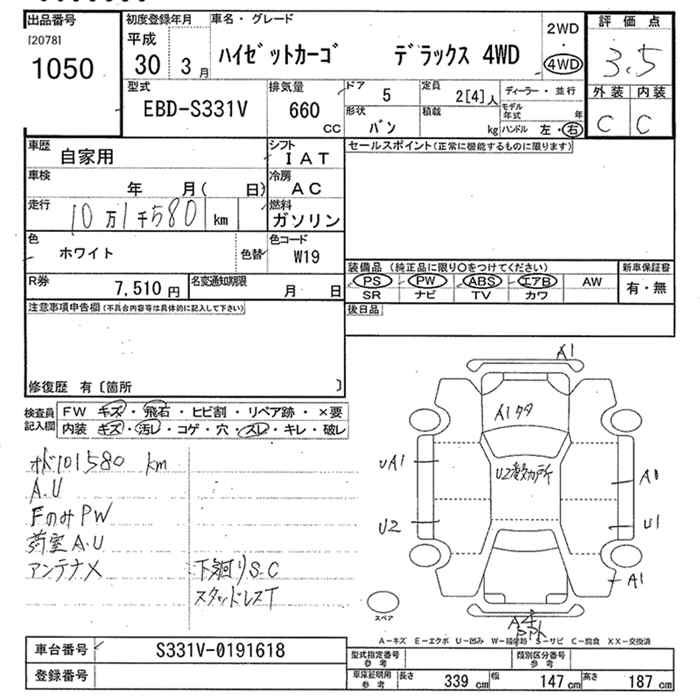 出品番号 初度登録年月 車名・グレード 2WD・4WD 評価点
[2078] 1050
平成 30 3月 ハイゼットカーゴ デラックス 4WD 3.5
型式 EBD-S331V 排気量 660 CC ドア 5 定員 2[4]人 ディーラー・並行 外装 内装
形状 バン 積載 kg モデル年式 年 ハンドル 左・右 C C
車歴 自家用 シフト IAT セールスポイント(正常に機能するものに限ります)
車検 年 月( 日) 冷房 AC
走行 10万1千580 km 燃料 ガソリン
色 ホワイト 色替 色コード W19
装備品 (純正品に限り〇をつけてください) 新車保証書
R券 7,510円 名変通知期限 月 日 PS PW ABS エアB AW 有・無
SR ナビ TV カワ
注意事項申告欄(不具合内容等は具体的に記入して下さい) 後日品
修復歴 有〔箇所 〕
検査員記入欄 FW キズ・飛石・ヒビ割・リペア跡・×要
内装 キズ・汚レ・コゲ・穴・スレ・キレ・破レ
オド101580 km
A.U
FのみPW
荷室A.U
アンテナX 下廻りS.C
スタッドレスT
A1
A1タタ
UA1 U2複数カ所 A1
U2 U1
A1
スペア
A-キズ E-エクボ U-凹み W-補修跡 S-サビ C-腐食 XX-交換済
車台番号 S331V-0191618 型式指定番号 参考 類別区分番号 参考
登録番号 車庫証明用 参考 長さ 339 cm 幅 147 cm 高さ 187 cm